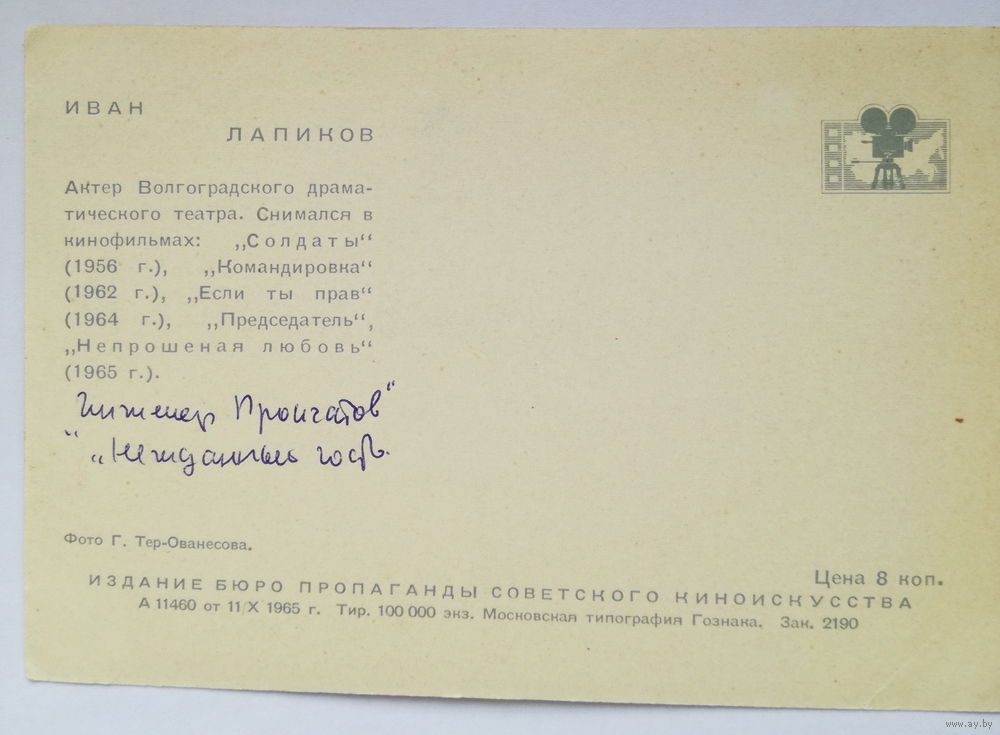 ИВАН
ЛАПИКОВ
Актер Волгоградского драма-
тического театра. Снимался в
кинофильмах: „Солдаты“
(1956 г.), „Командировка“
(1962 г.), „Если ты прав“
(1964 г.), „Председатель“,
„Непрошеная любовь“
(1965 г.).
Инженер Прончатов“
„Нежданный гость.
Фото Г. Тер-Ованесова.
Цена 8 коп.
ИЗДАНИЕ БЮРО ПРОПАГАНДЫ СОВЕТСКОГО КИНОИСКУССТВА
А 11460 от 11/X 1965 г. Тир. 100 000 экз. Московская типография Гознака. Зак. 2190
www.ay.by